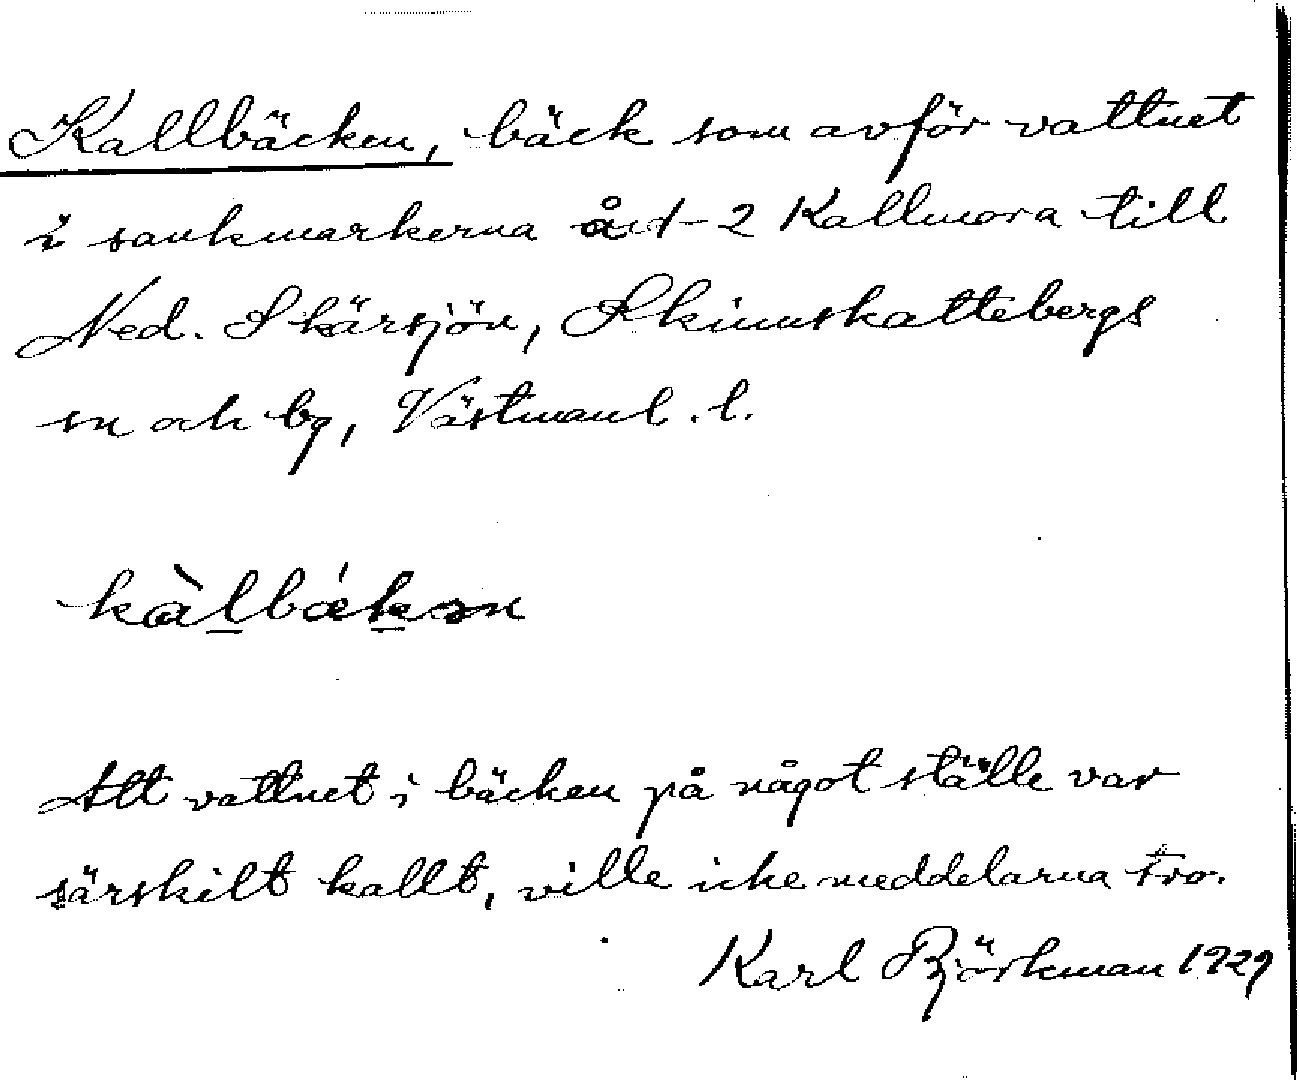 Kallbäcken, bäck som avför vattnet
i sankmarkerna 2 Kallmora till
Ned. Skärsjön, Skinnskattebergs
sn och bg, Västmanl. l.
kàlbǽkən
Att vattnet i bäcken på något ställe var
särskilt kallt, ville icke meddelarna tro.
Karl Björkman 1929